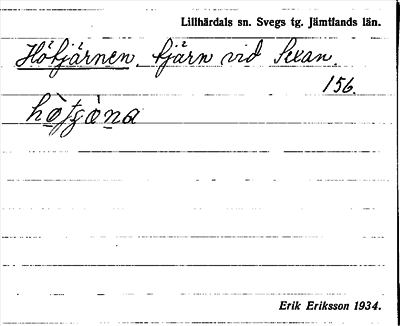 Lillhärdals sn. Svegs tg. Jämtlands län.
Hötjärnen tjärn vid Sexan.
156.
Erik Eriksson 1934.